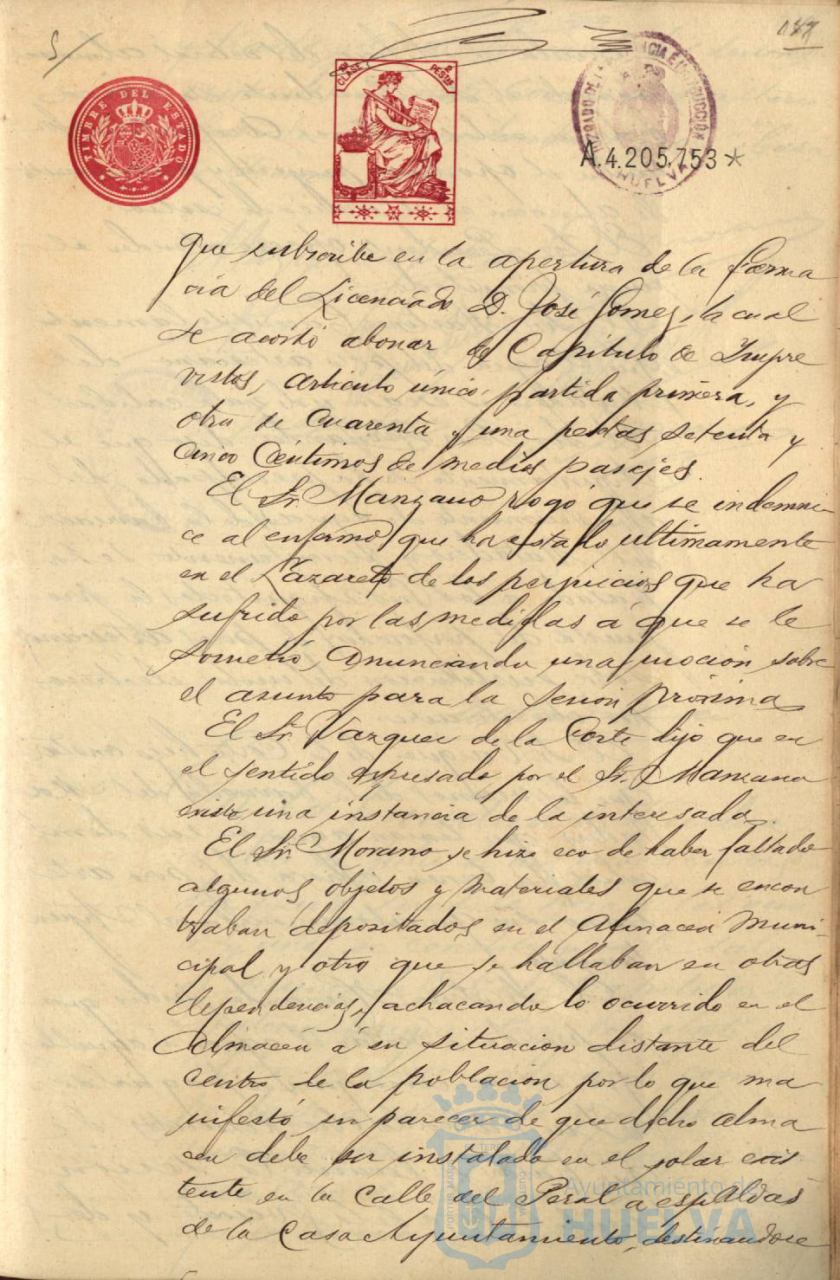 5
187
TIMBRE DEL ESTADO
CLASE
PESTAS
JUZGADO DE 1ª INSTANCIA E INSTRUCCION
HUELVA
A.4.205.753*
que subscribe en la apertura de la farma
cia del Licenciado D. José Gomez, la cual
se acordó abonar de Capítulo de Impre
vistos, artículo único, partida primera, y
otra de cuarenta y una pesetas setenta y
cinco Céntimos de medios pasajes.
El Sr. Manzano rogó que se indemni-
ce al enfermo que ha estado ultimamente
en el Lazareto de los perjuicios que ha
sufrido por las medidas á que se le
sometió, anunciando una moción sobre
el asunto para la sesión próxima
El Sr. Vazquez de la Corte dijo que en
el sentido expresado por el Sr. Manzano
existe una instancia de la interesada.
El Sr. Morano, se hizo eco de haber faltado
algunos objetos y materiales que se encon
traban depositados en el Almacén Muni-
cipal y otro que se hallaban en otras
dependencias, achacando lo ocurrido en el
Almacén á su situacion distante del
centro de la población por lo que ma
nifestó su parecer de que dicho alma
cen debe ser instalado en el solar exis
tente en la calle del Peral a espaldas
de la Casa Ayuntamiento, destinandose
Ayuntamiento de
HUELVA